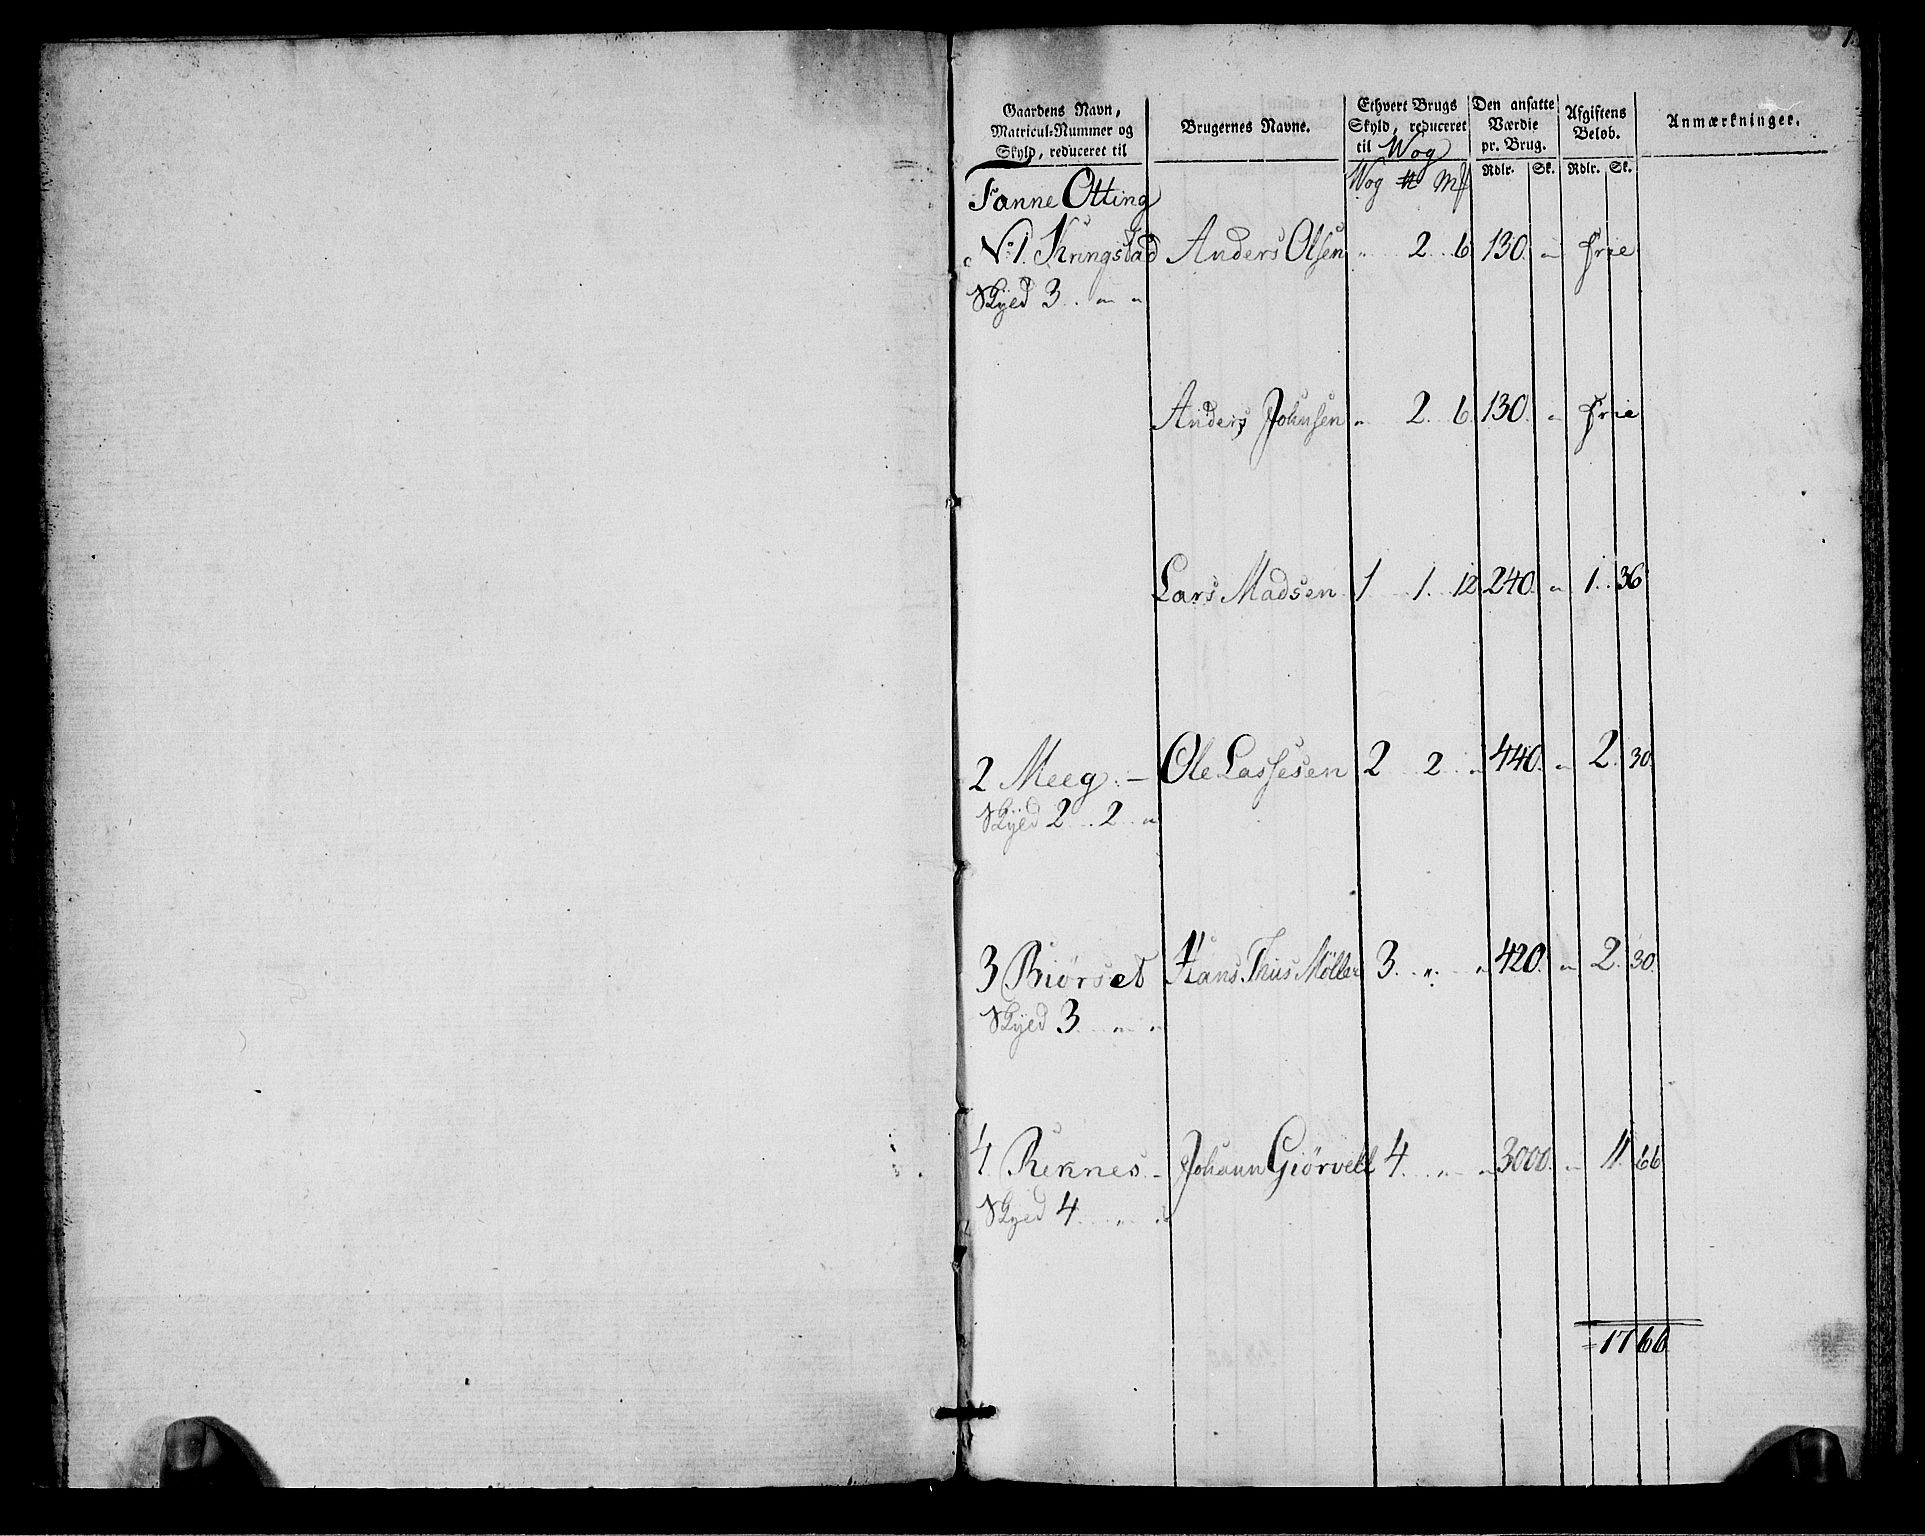 Gaardens Navn, Matricul-Nummer og Skyld, reduceret til
Brugernes Navne.
Ethvert Brugs Skyld, reduceret til Wog
Den ansatte Værdie pr. Brug.
Afgiftens Beløb.
Anmærkninger.
Wog ℔ Mk
Rdlr. Sk. Rdlr. Sk.
Fanne Otting
N:1. Kringstad Anders Olsen " 2 6 130. " frie
Skyld 3. " "
Anders Johnsen " 2. 6 130. " frie
Lars Madsen 1 1. 12 240. " 1. 36
2 Meeg. Ole Lassesen 2 2 " 440. " 2. 30
Skyld 2 2 "
3 Biörset Hans Thiis Møller 3. " " 420. " 2. 30
Skyld 3 " "
4 Reknes Johann Giörvell 4 " " 3000. " 11. 66
Skyld 4 " "
= 17 66